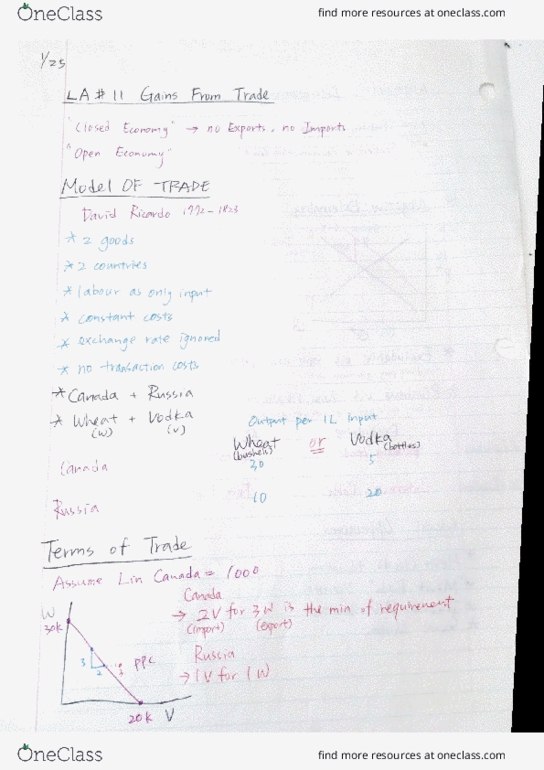 OneClass find more resources at oneclass.com
1/25
LA # 11 Gains From Trade
"Closed Economy" → no Exports, no Imports
"Open Economy"
Model OF TRADE
David Ricardo 1772-1823
* 2 goods
* 2 countries
* labour as only input
* constant costs
* exchange rate ignored
* no transaction costs
* Canada + Russia
* Wheat + Vodka
(W) (V)
Output per 1L Input
Wheat or Vodka
(bushels) (bottles)
Canada 30 5
Russia 10 20
Terms of Trade
Assume L in Canada = 1000
Canada
→ 2V for 3W is the min of requirement
(import) (export)
Russia
→ 1V for 1W
W
30k
3
2
PPC
20k V
OneClass find more resources at oneclass.com